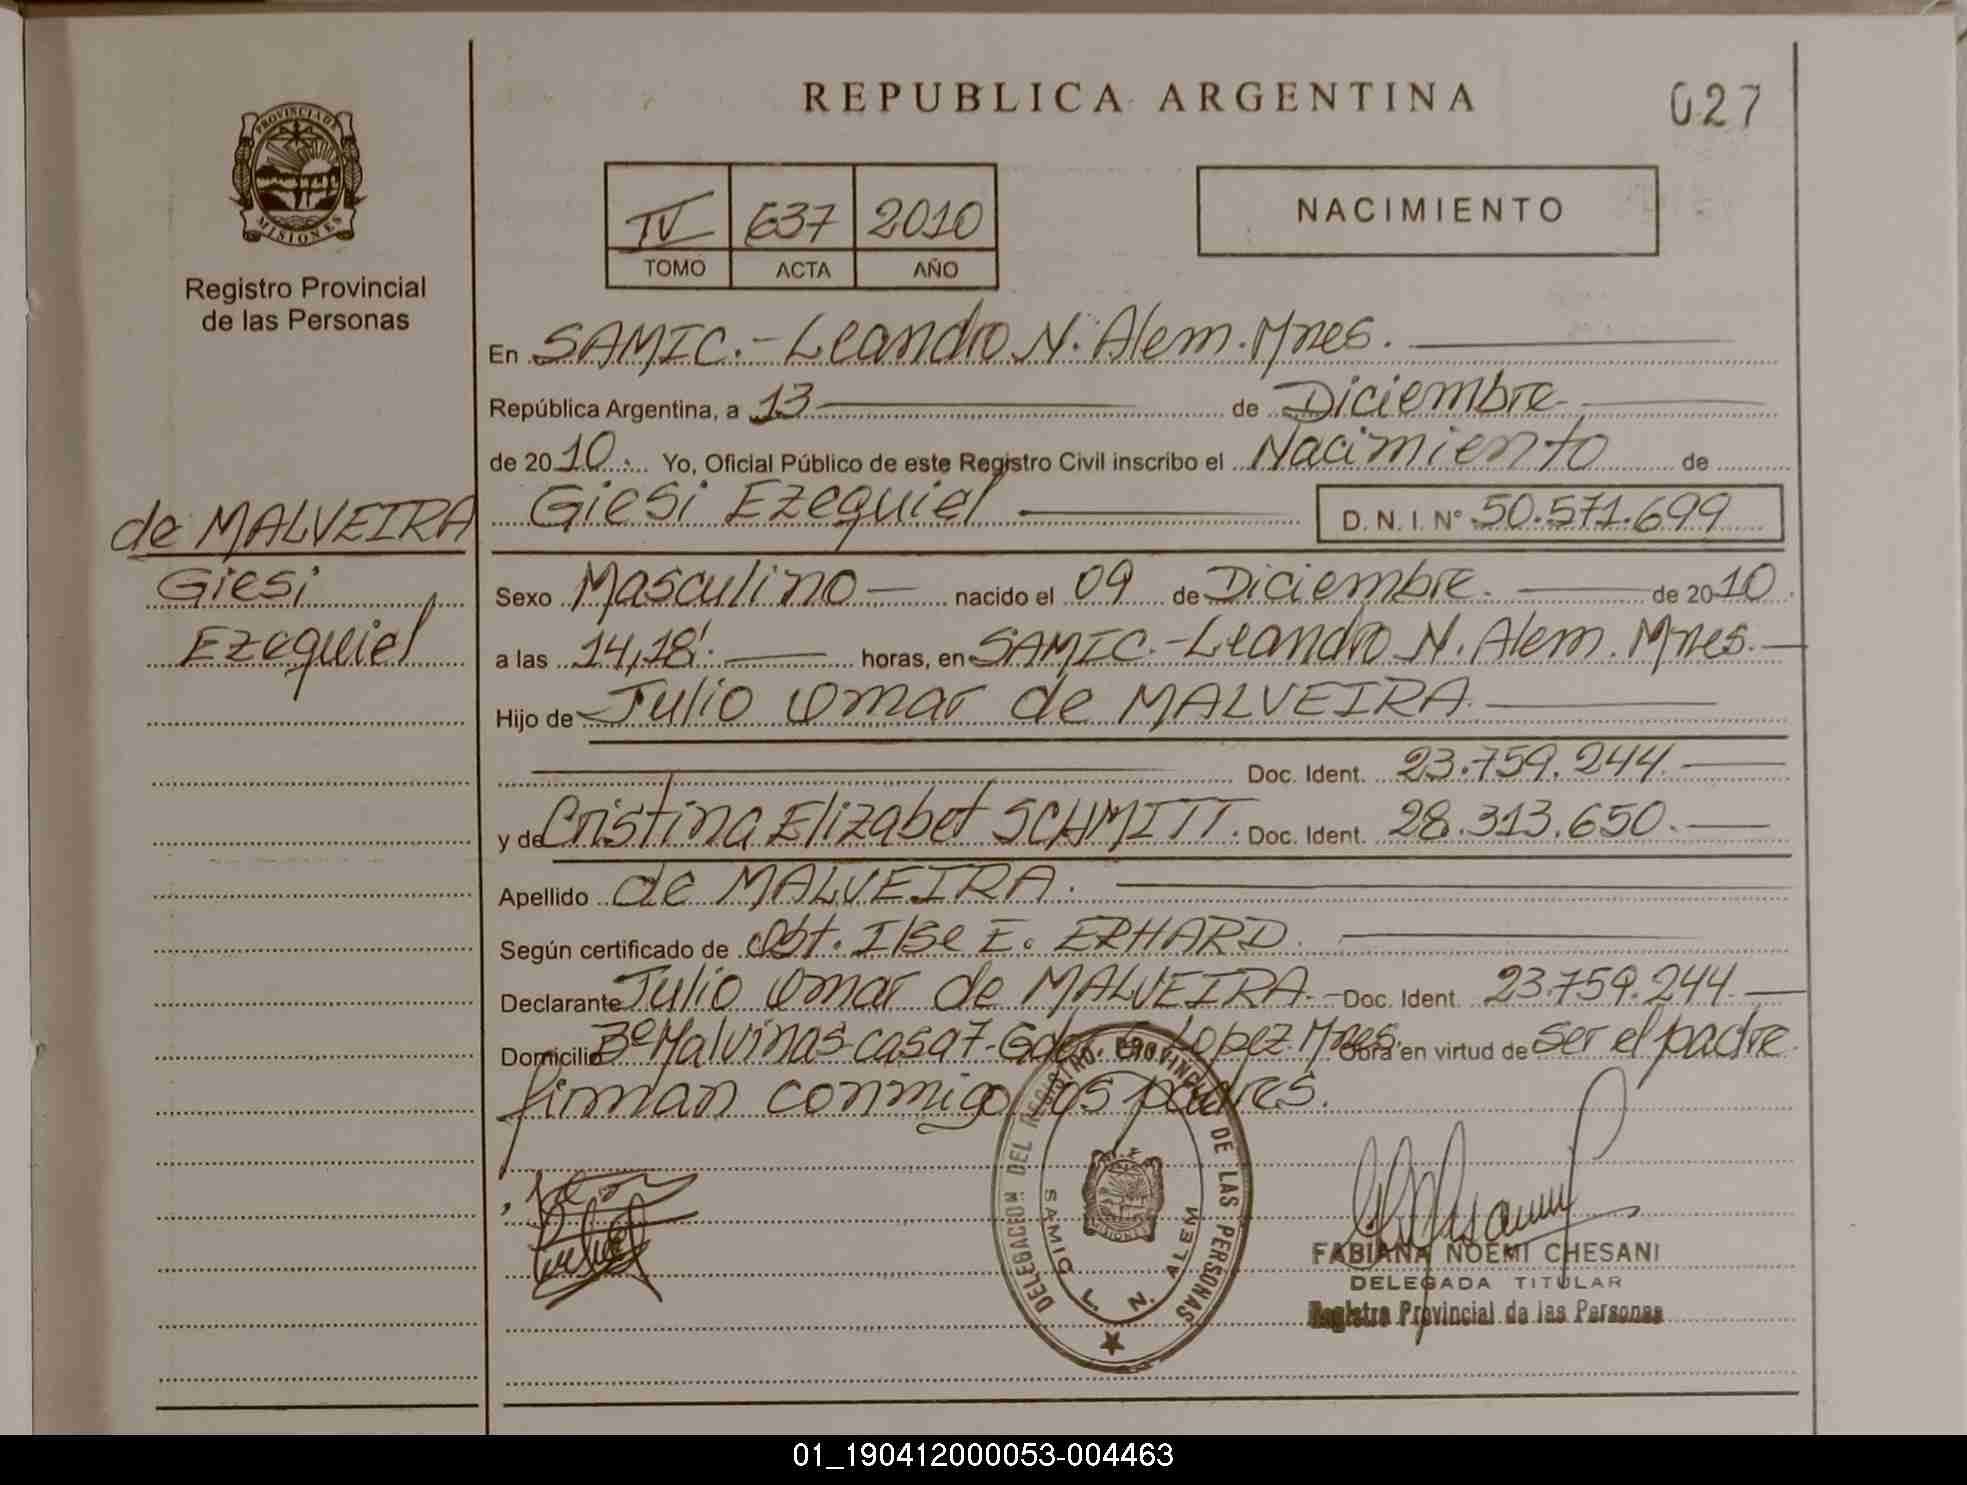 REPUBLICA ARGENTINA
027
PROVINCIA DE
MISIONES
Registro Provincial
de las Personas
IV 637 2010
TOMO ACTA AÑO
NACIMIENTO
En SAMIC.-Leandro N. Alem. Mnes.
República Argentina, a 13 de Diciembre
de 2010. Yo, Oficial Público de este Registro Civil inscribo el Nacimiento de
Giesi Ezequiel D. N. I. Nº 50.571.699
de MALVEIRA
Giesi
Ezequiel
Sexo Masculino nacido el 09 de Diciembre. de 2010
a las 14,18'. horas, en SAMIC.-Leandro N. Alem. Mnes.
Hijo de Julio Omar de MALVEIRA.
Doc. Ident. 23.759.244
y de Cristina Elizabet SCHMITT. Doc. Ident. 28.313.650.
Apellido de MALVEIRA.
Según certificado de Obt. Ilse E. ERHARD.
Declarante Julio Omar de MALVEIRA.- Doc. Ident. 23.759.244.
Domicilio Bº Malvinas-casa 7-Gdor Lopez. Mnes. Obra en virtud de ser el padre.
firman conmigo los padres.
DELEGACION DEL REGISTRO PROVINCIAL DE LAS PERSONAS
SAMIC L. N. ALEM
MISIONES
FABIANA NOEMI CHESANI
DELEGADA TITULAR
Registro Provincial de las Personas
01_190412000053-004463